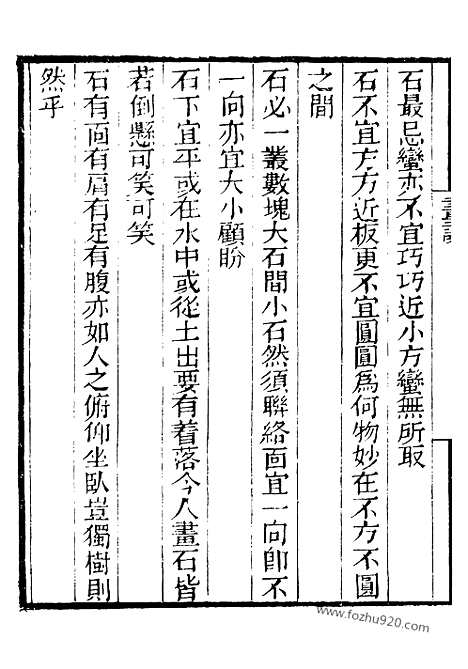 石最忌蠻亦不宜巧巧近小方蠻無所取
石不宜方方近板更不宜圓圓為何物妙在不方不圓
之間
石必一叢數塊大石間小石然須聯絡面宜一向卽不
一向亦宜大小顧盼
石下宜平或在水中或從土出要有着落今人畫石皆
若倒懸可笑可笑
石有面有肩有足有腹亦如人之俯仰坐臥豈獨樹則
然乎
www.fozhu920.com